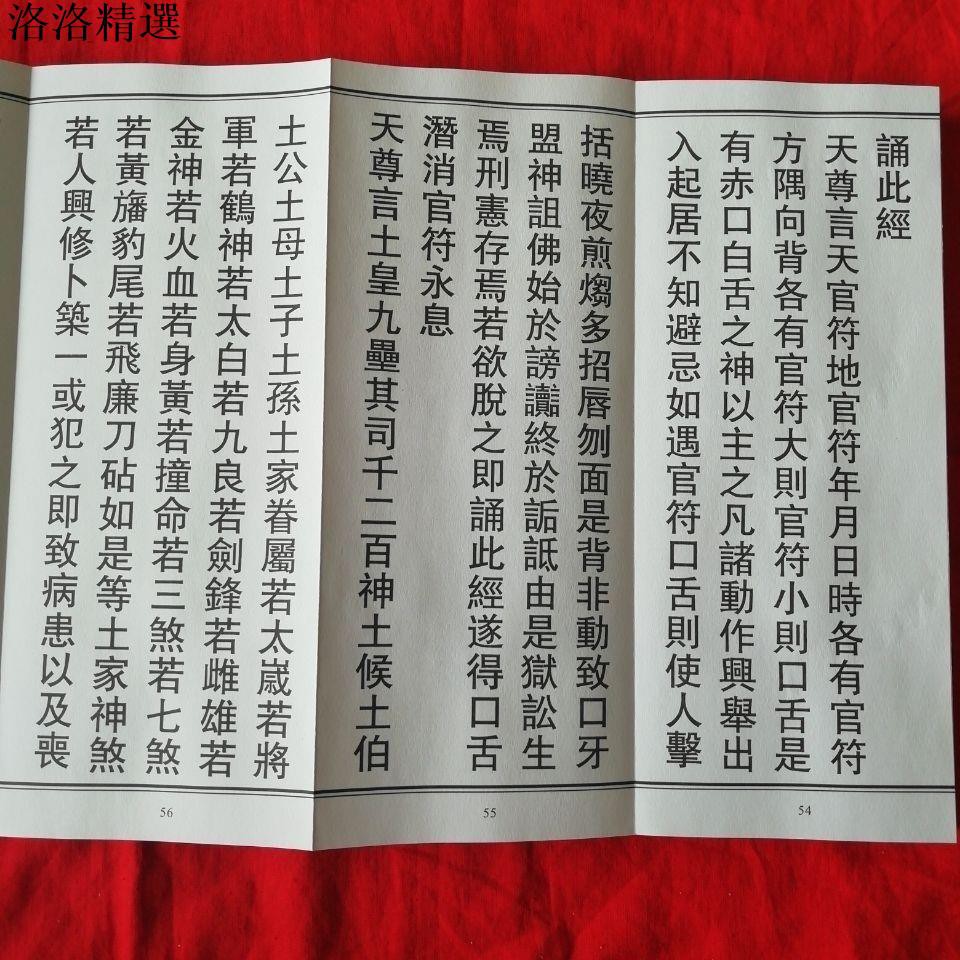 洛洛精選
誦此經
天尊言天官符地官符年月日時各有官符
方隅向背各有官符大則官符小則口舌是
有赤口白舌之神以主之凡諸動作興舉出
入起居不知避忌如遇官符口舌則使人擊
54
括曉夜煎煼多招唇刎面是背非動致口牙
盟神詛佛始於謗讟終於詬詆由是獄訟生
焉刑憲存焉若欲脫之即誦此經遂得口舌
潛消官符永息
天尊言土皇九壘其司千二百神土候土伯
55
土公土母土子土孫土家眷屬若太歲若將
軍若鶴神若太白若九良若劍鋒若雌雄若
金神若火血若身黃若撞命若三煞若七煞
若黃旛豹尾若飛廉刀砧如是等土家神煞
若人興修卜築一或犯之即致病患以及喪
56